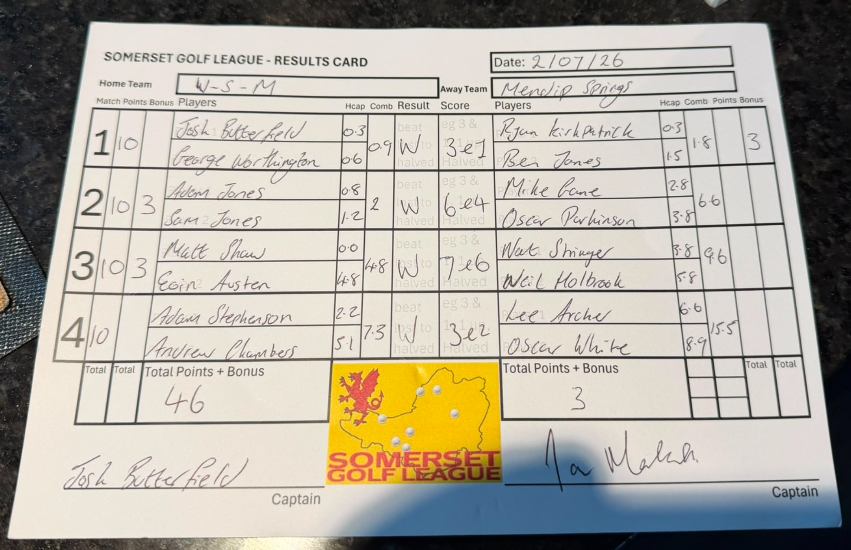 SOMERSET GOLF LEAGUE - RESULTS CARD
Date: 2/07/26
Home Team W-S-M Away Team Mendip Springs
Match Points Bonus Players Hcap Comb Result Score Players Hcap Comb Points Bonus
1 10 Josh Butterfield 0.3 0.9 W 3e1 Ryan Kirkpatrick 0.3 1.8 3
George Worthington 0.6 Ben Jones 1.5
2 10 3 Adam Jones 0.8 2 W 6e4 Mike Gane 2.8 6.6
Sam Jones 1.2 Oscar Parkinson 3.8
3 10 3 Matt Shaw 0.0 4.8 W 7e6 Nat Stringer 3.8 9.6
Eoin Austen 4.8 Neil Holbrook 5.8
4 10 Adam Stephenson 2.2 7.3 W 3e2 Lee Archer 6.6 15.5
Andrew Chambers 5.1 Oscar White 8.9
Total Total Total Points + Bonus Total Points + Bonus Total Total
46 3
SOMERSET
GOLF LEAGUE
Josh Butterfield
Captain Captain